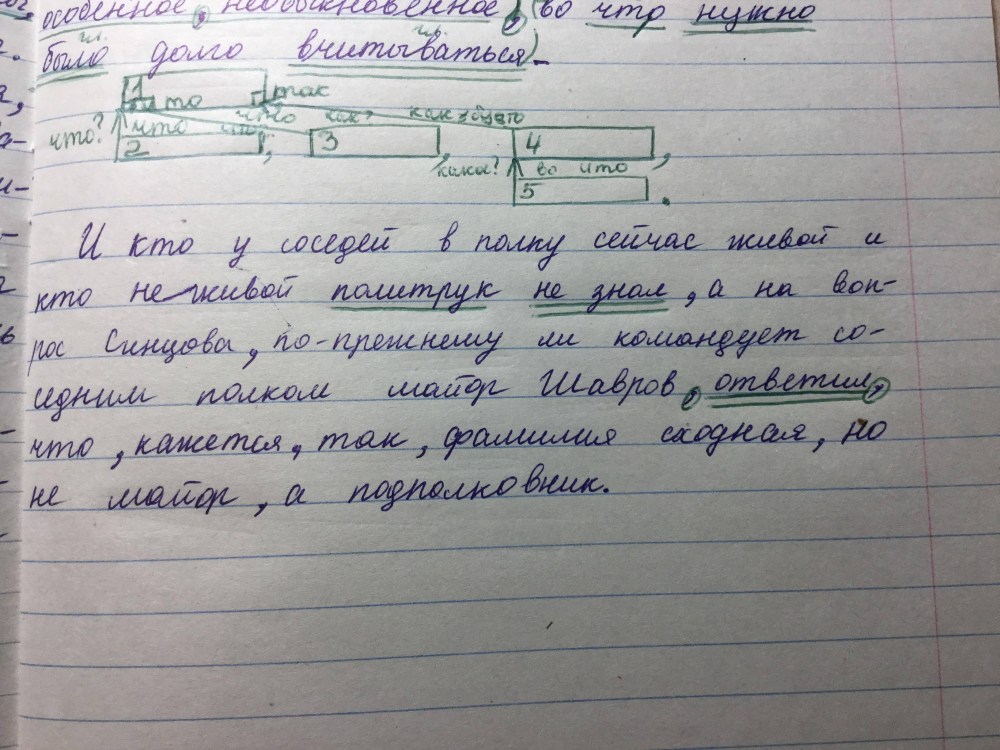 особенное, необыкновенное, (во что нужно
было долго вчитываться).
1
что так
что как, как будто
что? что
2, 3, 4,
какое? во что
5.
И кто у соседей в полку сейчас живой и
кто неживой политрук не знал, а на воп-
рос Синцова, по-прежнему ли командует со-
седним полком майор Шавров, ответил,
что, кажется, так, фамилия сходная, но
не майор, а подполковник.